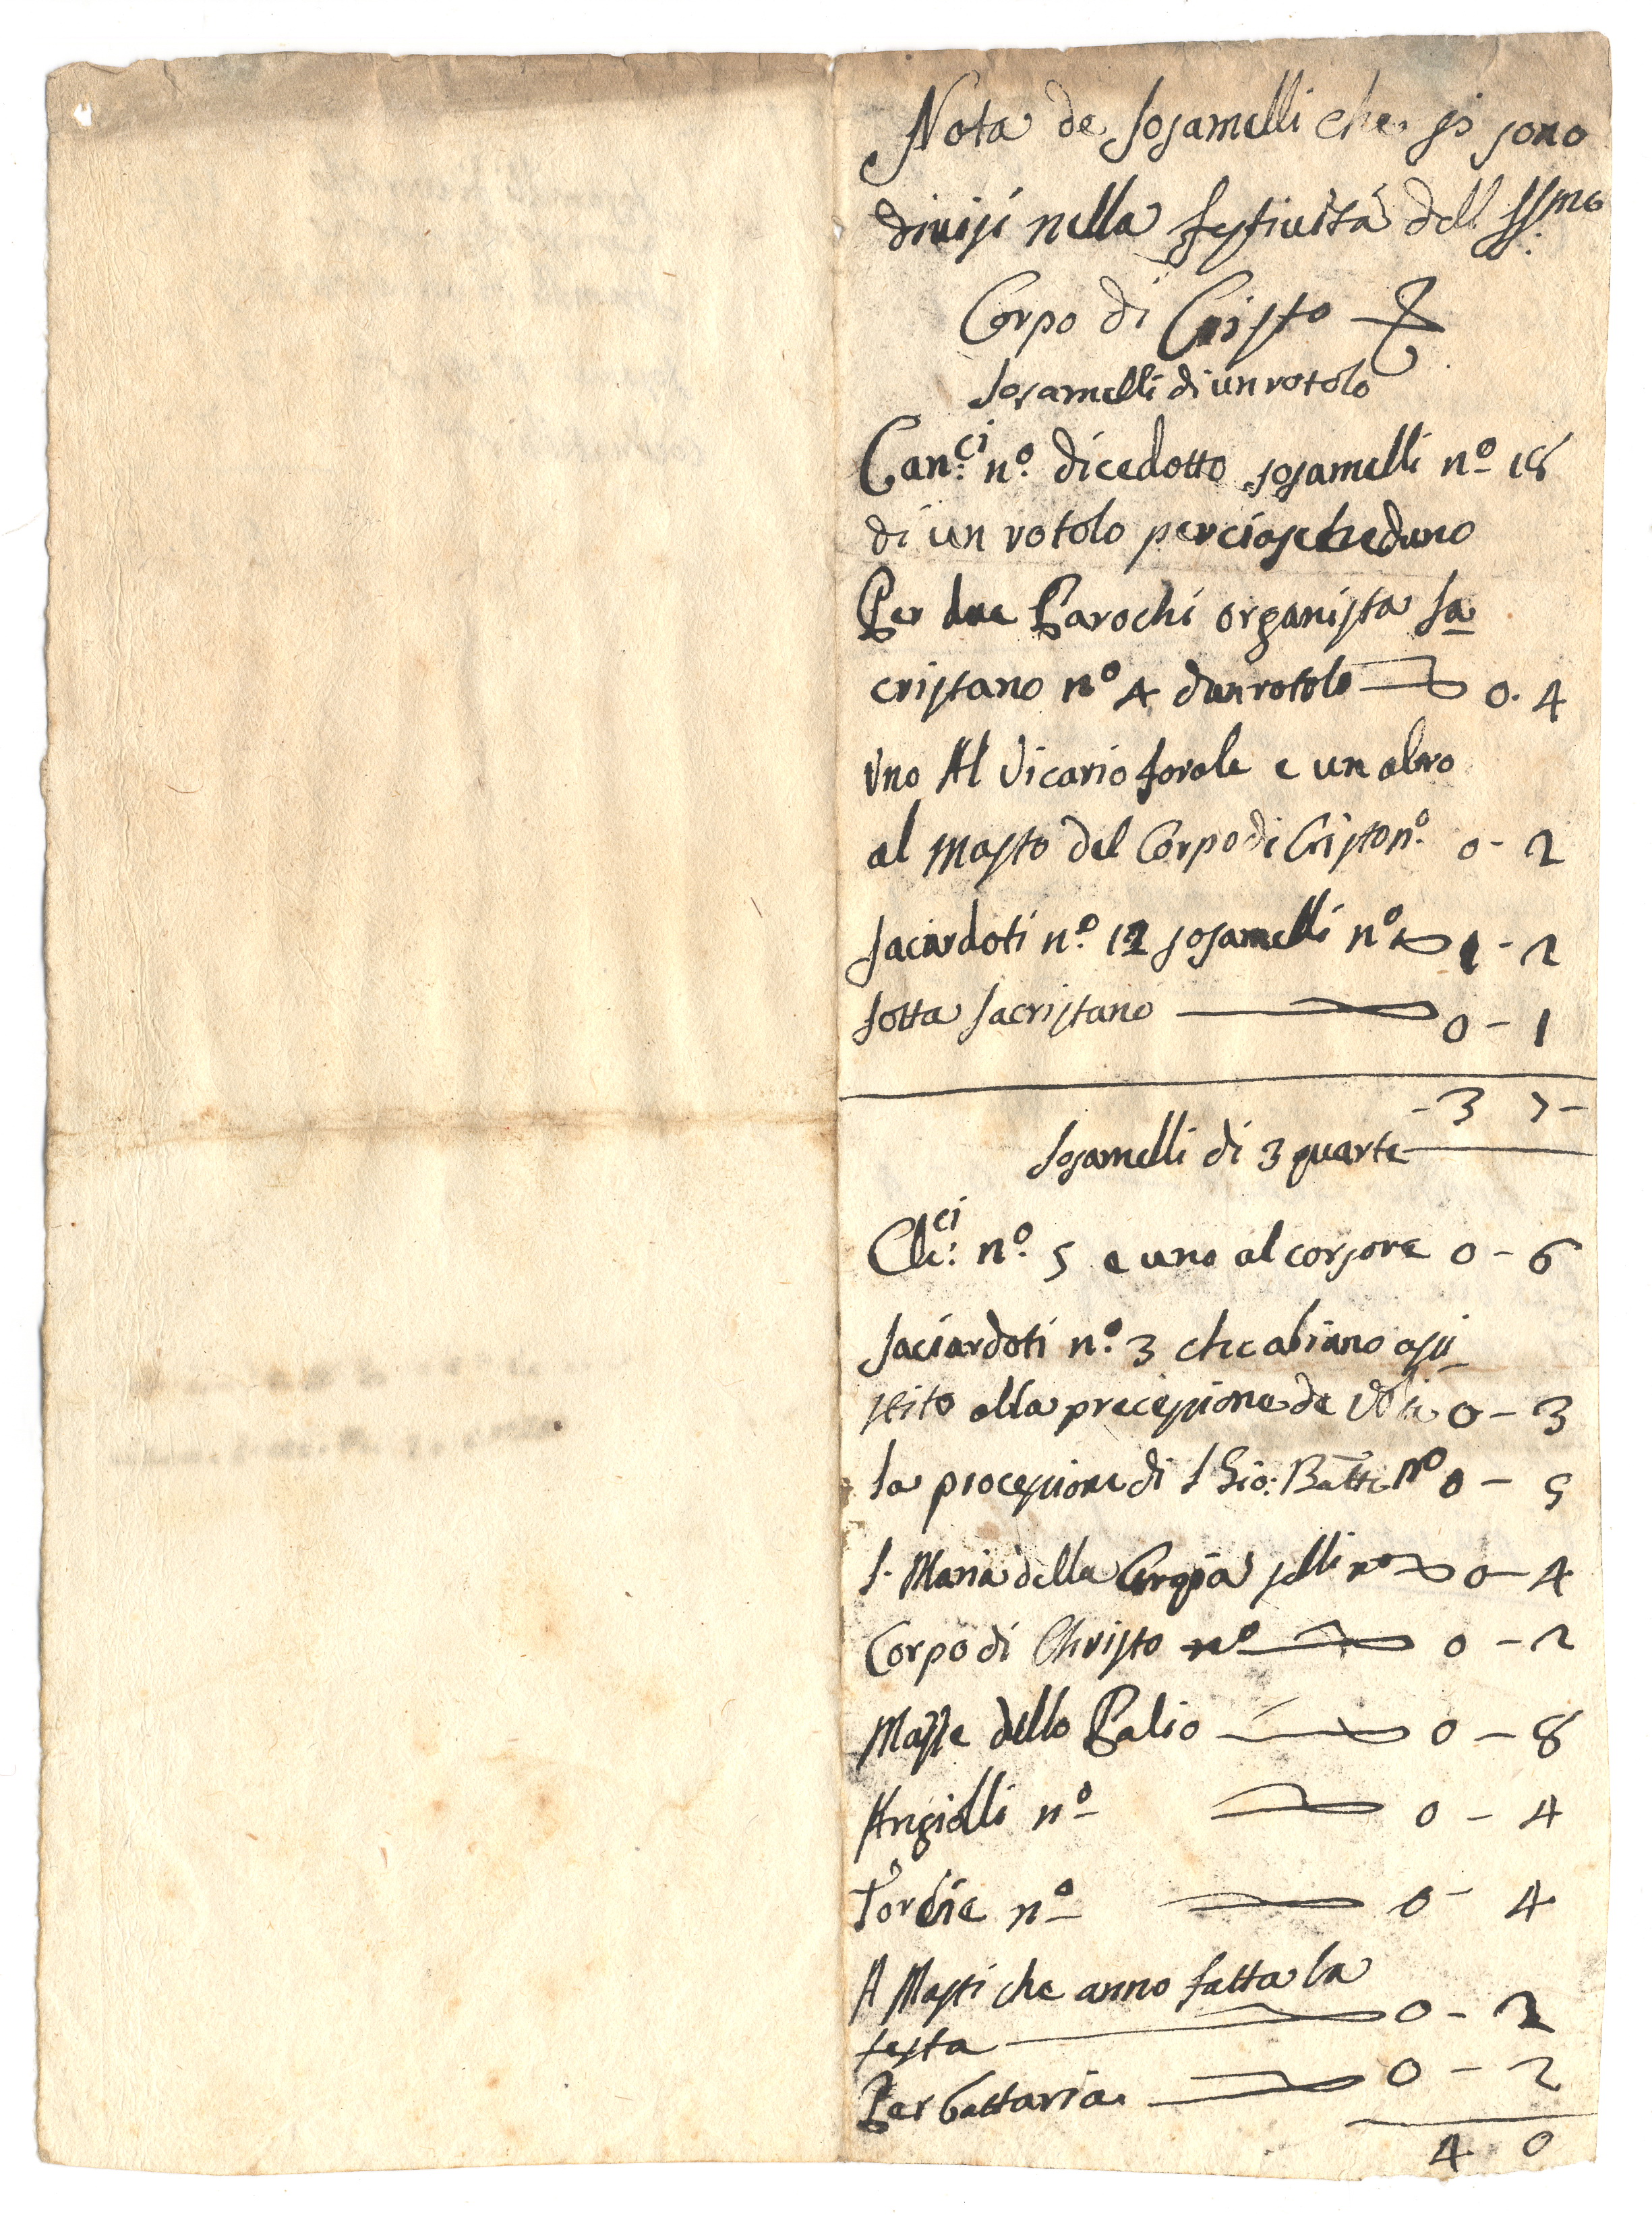 Nota de sosamelli che si sono
divisi nella festiuità dell SS:mo
Corpo di Cristo
Sosamelli di un rotolo
Can:ci nº. dicedotto sosamelli nº 18
di un rotolo perciascheduno
Per due Parochi organista sa
cristano nº 4 d un rotolo 0. 4
Uno Al Vicario forale e un altro
al Masto del Corpo di Cristo nº. 0 - 2
Saciardoti nº. 12 sosamelli nº 1 - 2
Sotta Sacristano 0 - 1
- 3 7 -
Sosamelli di 3 quarte
Cle:ci nº. 5 e uno al corsore 0 - 6
Saciardoti nº. 3 che abiano asi
stito alla precessione de 0 - 3
la processione di S Gio: Batti nº 0 - 5
S. Maria della selli nº 0 - 4
Corpo di Christo nº 0 - 2
Masse dello Palio 0 - 8
Angiolli nº 0 - 4
Torcie nº 0 - 4
A Masti che anno fatta la
festa 0 - 2
Per battaria 0 - 2
4 0